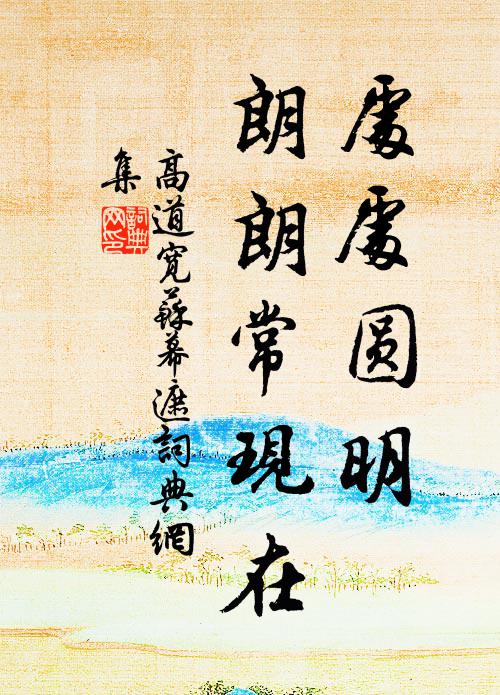 處處圆明
朗朗常現在
高道寬蘇幕遮詞典網
集
詞典网印